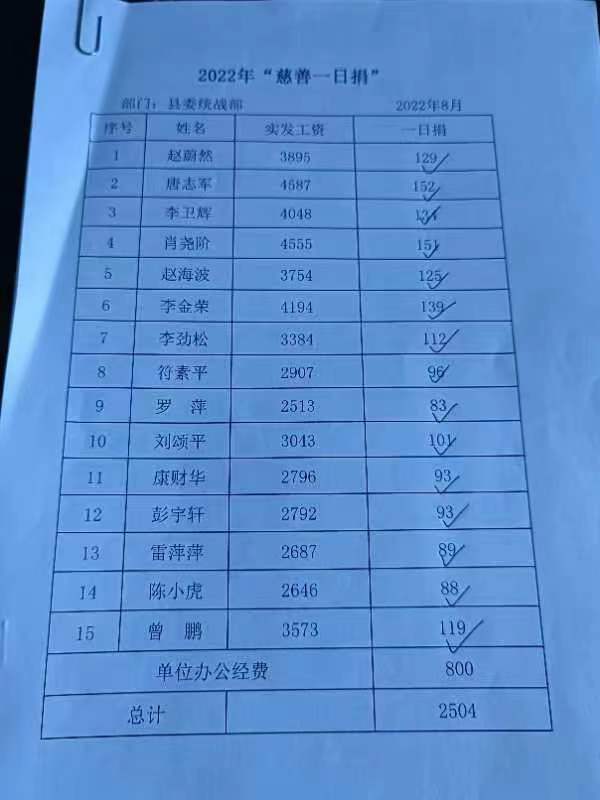 2022年“慈善一日捐”
部门：县委统战部 2022年8月
序号 姓名 实发工资 一日捐
1 赵蔚然 3895 129
2 唐志军 4587 152
3 李卫辉 4048 134
4 肖尧阶 4555 151
5 赵海波 3754 125
6 李金荣 4194 139
7 李劲松 3384 112
8 符素平 2907 96
9 罗 萍 2513 83
10 刘颂平 3043 101
11 康财华 2796 93
12 彭宇轩 2792 93
13 雷萍萍 2687 89
14 陈小虎 2646 88
15 曾 鹏 3573 119
单位办公经费 800
总计 2504